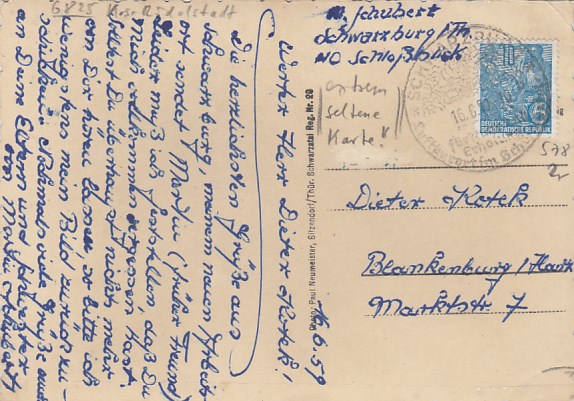 6825 Krs. Rudolstadt
M. Schubert
Schwarzburg/Th.
HO Schloßblick
extrem
seltene
Karte!
10
DEUTSCHE
DEMOKRATISCHE REPUBLIK
578
16.6.59
Werter Herr Dieter Kotek!
Die herzlichsten Grüße aus
Schwarzburg, meinem neuen Arbeits-
ort sendet Martin (früher Freund)
Leider muß ich feststellen, daß Du
mich vollkommen vergessen hast.
Solltest Du überhaupt nichts mehr
von Dir hören lassen, so bitte ich
wenigstens mein Bild zurückzu-
schicken. Nochmals viele Grüße auch
an Deine Eltern und Schwester
von Martin Schubert
Photo: Paul Neumeister, Sitzendorf/Thür. Schwarzatal Reg. Nr. 29
Dieter Kotek
Blankenburg/Harz
Marktstr. 7